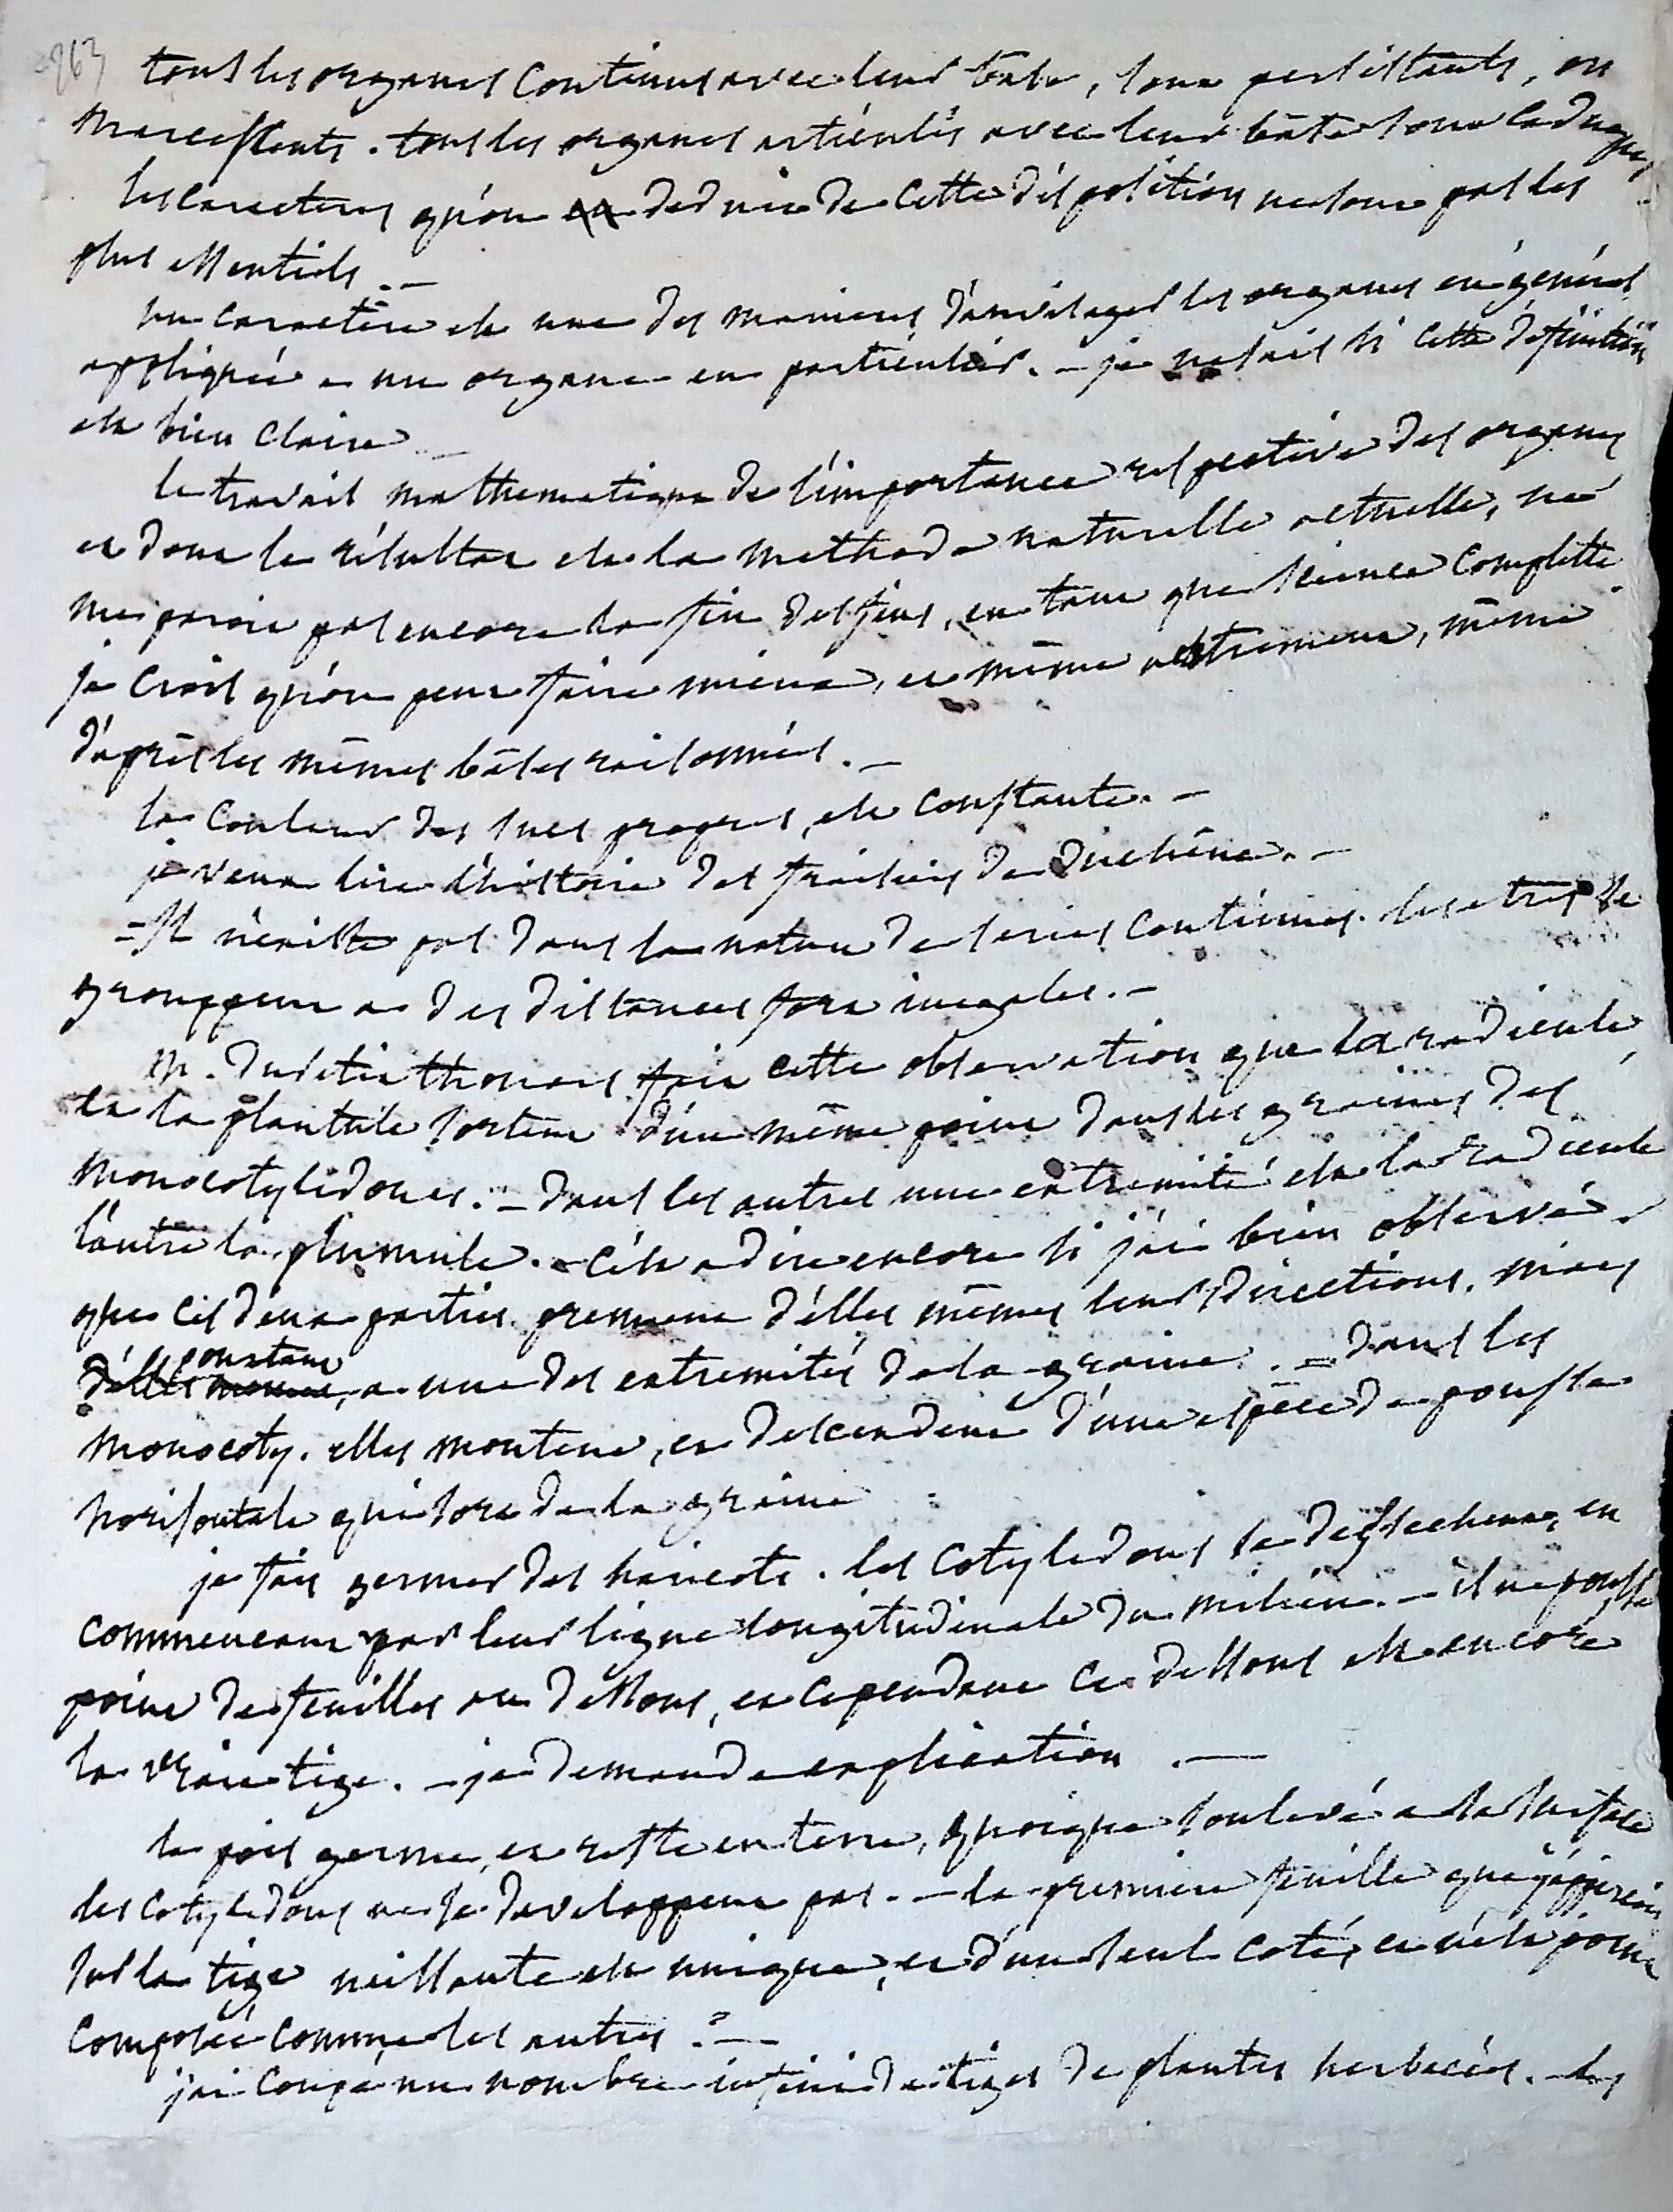 tous les organes continus avec leur base, sont persistants, ou
marcessents. tous les organes articulés avec leur base sont caduques
les caracteres qu'on deduit de cette disposition ne sont pas les
plus essentiels. —
un caractère est une des manieres d'envisager les organes en général
appliquée a un organe en particulier. — je ne sais si cette définition
est bien claire —
le travail mathematique de l'importance respective des organes
et dont le résultat est la methode naturelle actuelle, ne
me paroit pas encore la fin des fins, en tant que science complette
je crois qu'on peut faire mieux, et même autrement, même
d'après les mêmes bâses raisonnées. —
la couleur des sucs propres, est constante. —
je veux lire l'histoire des fraisiers de Duchêne. —
= Il n'existe pas dans la nature de series continues. les etres se
grouppent a des distances fort inegales. —
M. du petit thouars fait cette observation que la radicule
et la plantule sortent d'un même point dans les graines des
monocotyledones. — dans les autres une extremité est la radicule
l'autre la plumule. — c'est a dire encore si j'ai bien observé
que ces deux parties prennent d'elles mêmes leurs directions. mais
constam
d'elles memes, a une des extremités de la graine. — dans les
monocoty. elles montent, et descendent d'une espèce de pousse
horisontale qui sort de la graine
je fais germer des haricots. les cotyledons se dessechent, en
commencant par leur ligne longitudinale du milieu. — il ne pousse
point de feuilles au dessous, et cependant ce dessous est encore
la vraie tige. — je demande explication. —
le pois germe, et reste en terre, quoique soulevé a la surface
les cotyledons ne se developpent pas. — la premiere feuille que j'apperçois
sur la tige naissante est unique, et d'un seul coté, et n'est point
composée comme les autres ? —
j'ai coupé un nombre infini de tiges de plantes herbacées. — les